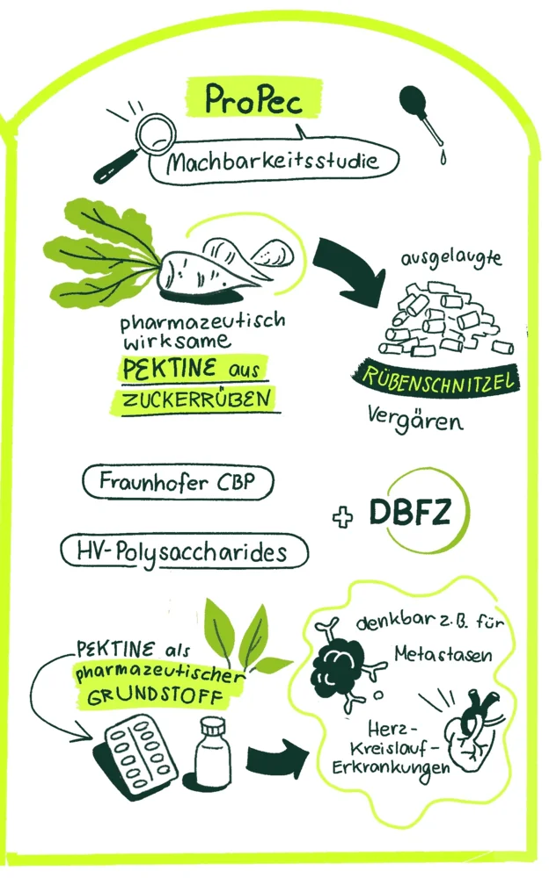 ProPec
Machbarkeitsstudie
pharmazeutisch
wirksame
PEKTINE aus
ZUCKERRÜBEN
ausgelaugte
RÜBENSCHNITZEL
Vergären
Fraunhofer CBP
HV-Polysaccharides
+ DBFZ
PEKTINE als
pharmazeutischer
GRUNDSTOFF
denkbar z.B. für
Metastasen
Herz-
Kreislauf-
Erkrankungen